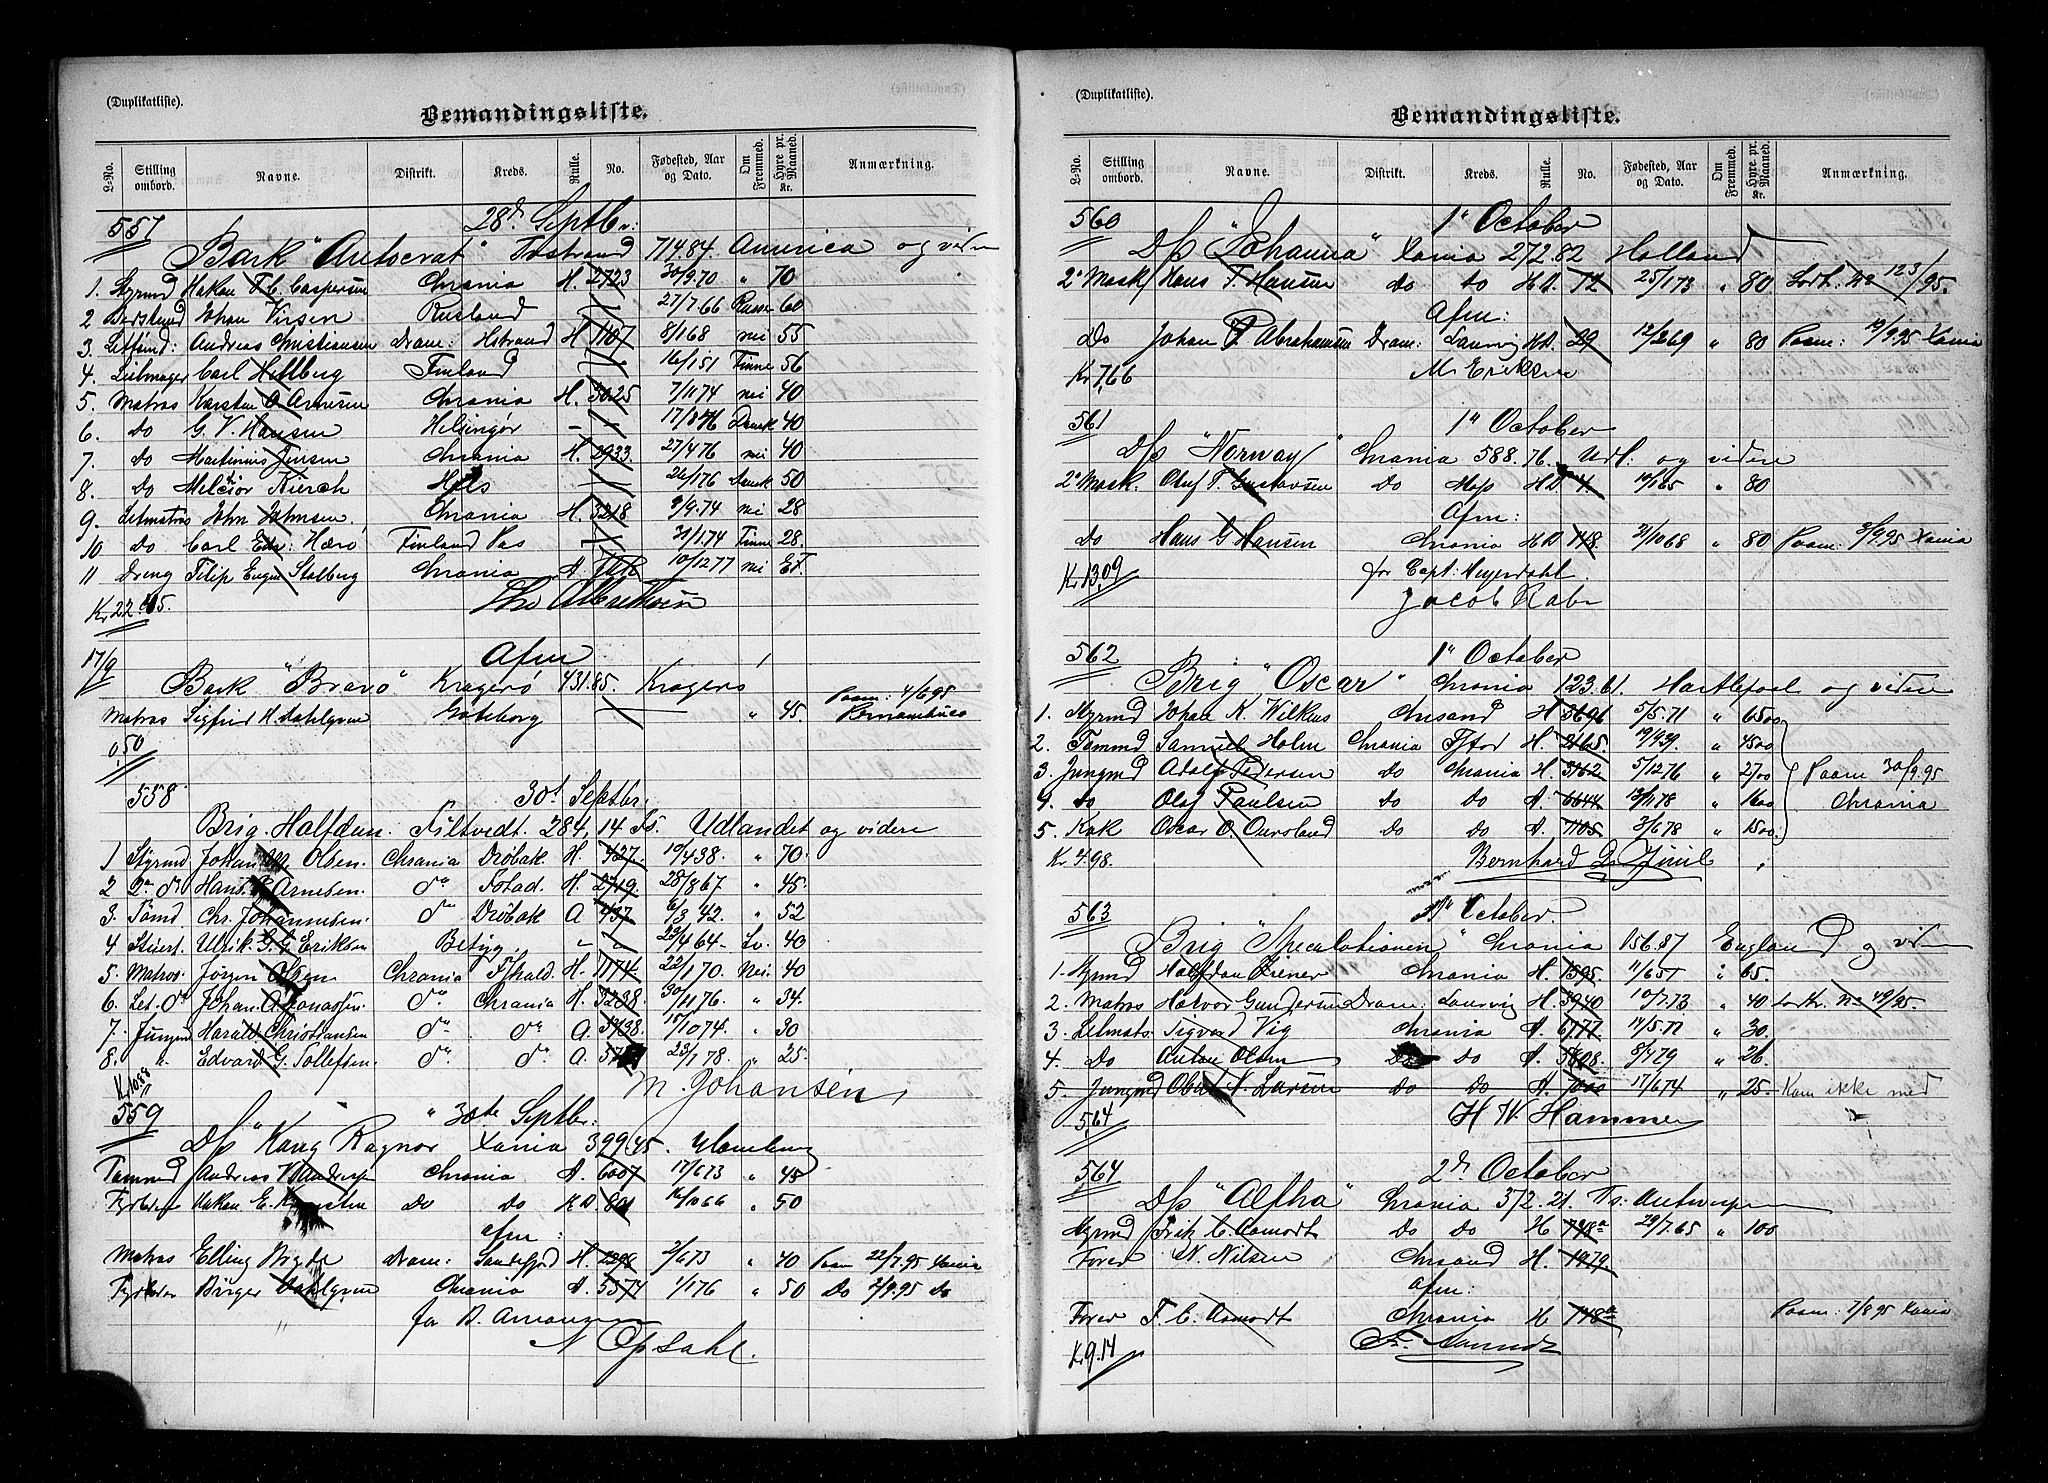 (Duplikatliste).
Bemandingsliste.
L-No. Stilling ombord. Navne. Distrikt. Kreds. Rulle. No. Fødested, Aar og Dato. Om Fremmed. Hyre pr. Maaned. Kr. Anmærkning.
557 28d Septbr:
Bark "Autocrat" 714.84. America og videre
1. Styrmd Hakan F. C. Caspersen Chrania H. 2723 30/9.70 " 70
2 Johan Virsen Rusland 27/7.66 Russe 60
3. Andreas Christiansen Dram: Hstrand H 1107 8/168 nei 55
4. Carl Hellberg Finland 16/151 Finne 56
5. Matros Karsten A Arnesen Chrania H. 3025 7/1174 nei 40
6. Do G. V. Hansen Helsingør 17/876 Dansk 40
7. Do Martinius Jensen Chrania H. 2933 27/476 nei 40
8. Do Melchior Kierch 26/176 Dansk 50
9. Letmatros John Johnsen Chrania H. 3218 9/9.74 nei 28
10 Do Carl Edv: Hærø Finland Pas 31/1.74 Finne 28
11 Dreng Filip Eugen Stalberg Chrania A. 10/1277 nei
Kr 22.65.
17/9 Afm
Bark "Bravo" Kragerø 431.85. Kragerø
Matros Sigfrid H. Dahlgren Gøteborg " 45. Paam: 4/6 95 Pernambuco
0,50
558 30t Septbr.
Brig. Halfdan. Filtvedt. 284,14 Ts. Udlandet og videre
1 Styrmd Johan M. Olsen. Chrania Drøbak H. 427. 19/438. " 70.
2 2n do Hans B Arnesen. do H. 2719. 28/867 " 45.
3. Tømd Chr. Johannesen. do Drøbak A 437 6/3 42. " 52
4 Stuert. Ulrik G. G. Erikson Betyg. 23/4 64. Sv. 40
5. Matros. Jørgen Olsen Chrania Fhald. H. 1174. 22/170. Nei. 40
6. Let. do Johan. A Jonassen. do Chrania H. 3238. 30/1176. " 34.
7. Jungm Harald Christiansen do do A. 3438. 15/1074. " 30
8. " Edvard G. Tollefsen. do do A. 23/178. " 25.
Kr 10.88 M. Johansen
559 " 30te Septbr:
D/s "Kong Ragnar Xania 399.45. Hamburg
Tømmd Andreas V Andresen Chrania A. 6007 17/673 " 45
Fyrbøder Hakan E. Do Do H D. 801 12/1066 " 50
afm:
Matros Elling Brydde Dram: Sandefjord H. 2299 2/673 " 40 Paam 22/7.95 Xania
Fyrbøder Birger Dahlgren Chrania A. 5374 1/176 " 50 Do 2/9.95 Do
for B. Amonsen
N Opsahl.
(Duplikatliste).
Bemandingsliste.
L-No. Stilling ombord. Navne. Distrikt. Kreds. Rulle. No. Fødested, Aar og Dato. Om Fremmed. Hyre pr. Maaned. Kr. Anmærkning.
560 1" October
D/s "Johanna" Xania 272.82 Holland
2" Mask Hans T. Hansen Do do H D. 72 25/173 " 80
Afm:
Do Johan P Abrahamsen Dram: Laurvig H D. 29 12/269 " 80 Paam: 19/9.95 Xania
Kr 7,66 M. Eriksen
561 1" October
D/s "Norway" Chrania 588.76. Udl: og videre
2" Mask. Oluf T. Gustavsen Do H D. 4. " 80
Afm:
Do Hans G Hansen Chrania H D 148. 31/1068 " 80 Paam: 3/9.95 Xania
Kr 13,09 for Capt: Meyerdahl.
Jacob Rabe
562 1" October
Brig "Oscar" Chrania 123.61. Hartlepool og videre
1. Styrmd Johan K. Wilkus Chrsand H 3696 5/5.71 " 6500
2. Tømmd Samuel Holm Chrania H. 2165. 19/939. " 4500
3. Jungmd Adolf Pedersen Do Chrania H. 3162 5/1276 " 2700 Paam 30/9.95
4. do Olaf Paulsen Do Do A. 6644 13/1178 " 1600 Chrania
5. Kok Oscar O. Do Do A. 1105 3/678 " 1500
Kr 4.98. Bernhard D. Juul
563 1" October.
Brig "Speculationen" Chrania 156.87 England og viden
1. Styrmd Halfdan Chrania H. 1595. 11/651 " 65.
2. Matros Halvor Gundersen Dram: Laurvig H. 3940 10/7.73 " 40
3. Letmats. Sigvard Vig Chrania A. 6777 14/5.77 " 30.
4. Do Anton Olsen Do do A. 5808. 8/479 " 26.
5. Jungmd N. Larsen Do Do A. 7000 17/674 " 25. Kom ikke med
5,64 H W. Hammer
564 2d October
D/s "Alfha" Chrania 372.21. Ts. Antwerpen
Styrmd Fritz C. Aamodt Do Do H 748a 29/7.65 " 100
Fører N. Nilsen Chrsand H. 1979
afm:
Fører F. C. Aamodt Chrania H 748a Paam: 7/8 95 Xania
Kr 9.14